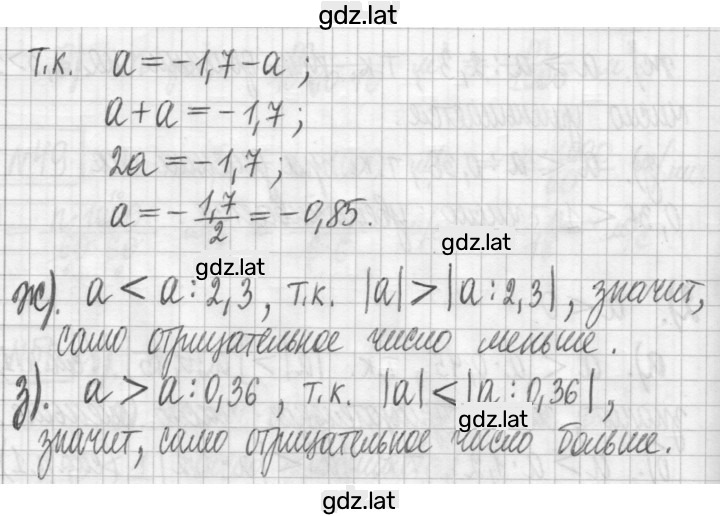 gdz.lat
т.к. a = -1,7 - a ;
a + a = -1,7 ;
2a = -1,7 ;
a = - 1,7/2 = -0,85.
gdz.lat
gdz.lat
ж). a < a : 2,3 , т.к. |a| > |a : 2,3| , значит,
само отрицательное число меньше.
з). a > a : 0,36 , т.к. |a| < |a : 0,36| ,
gdz.lat
значит, само отрицательное число больше.
gdz.lat